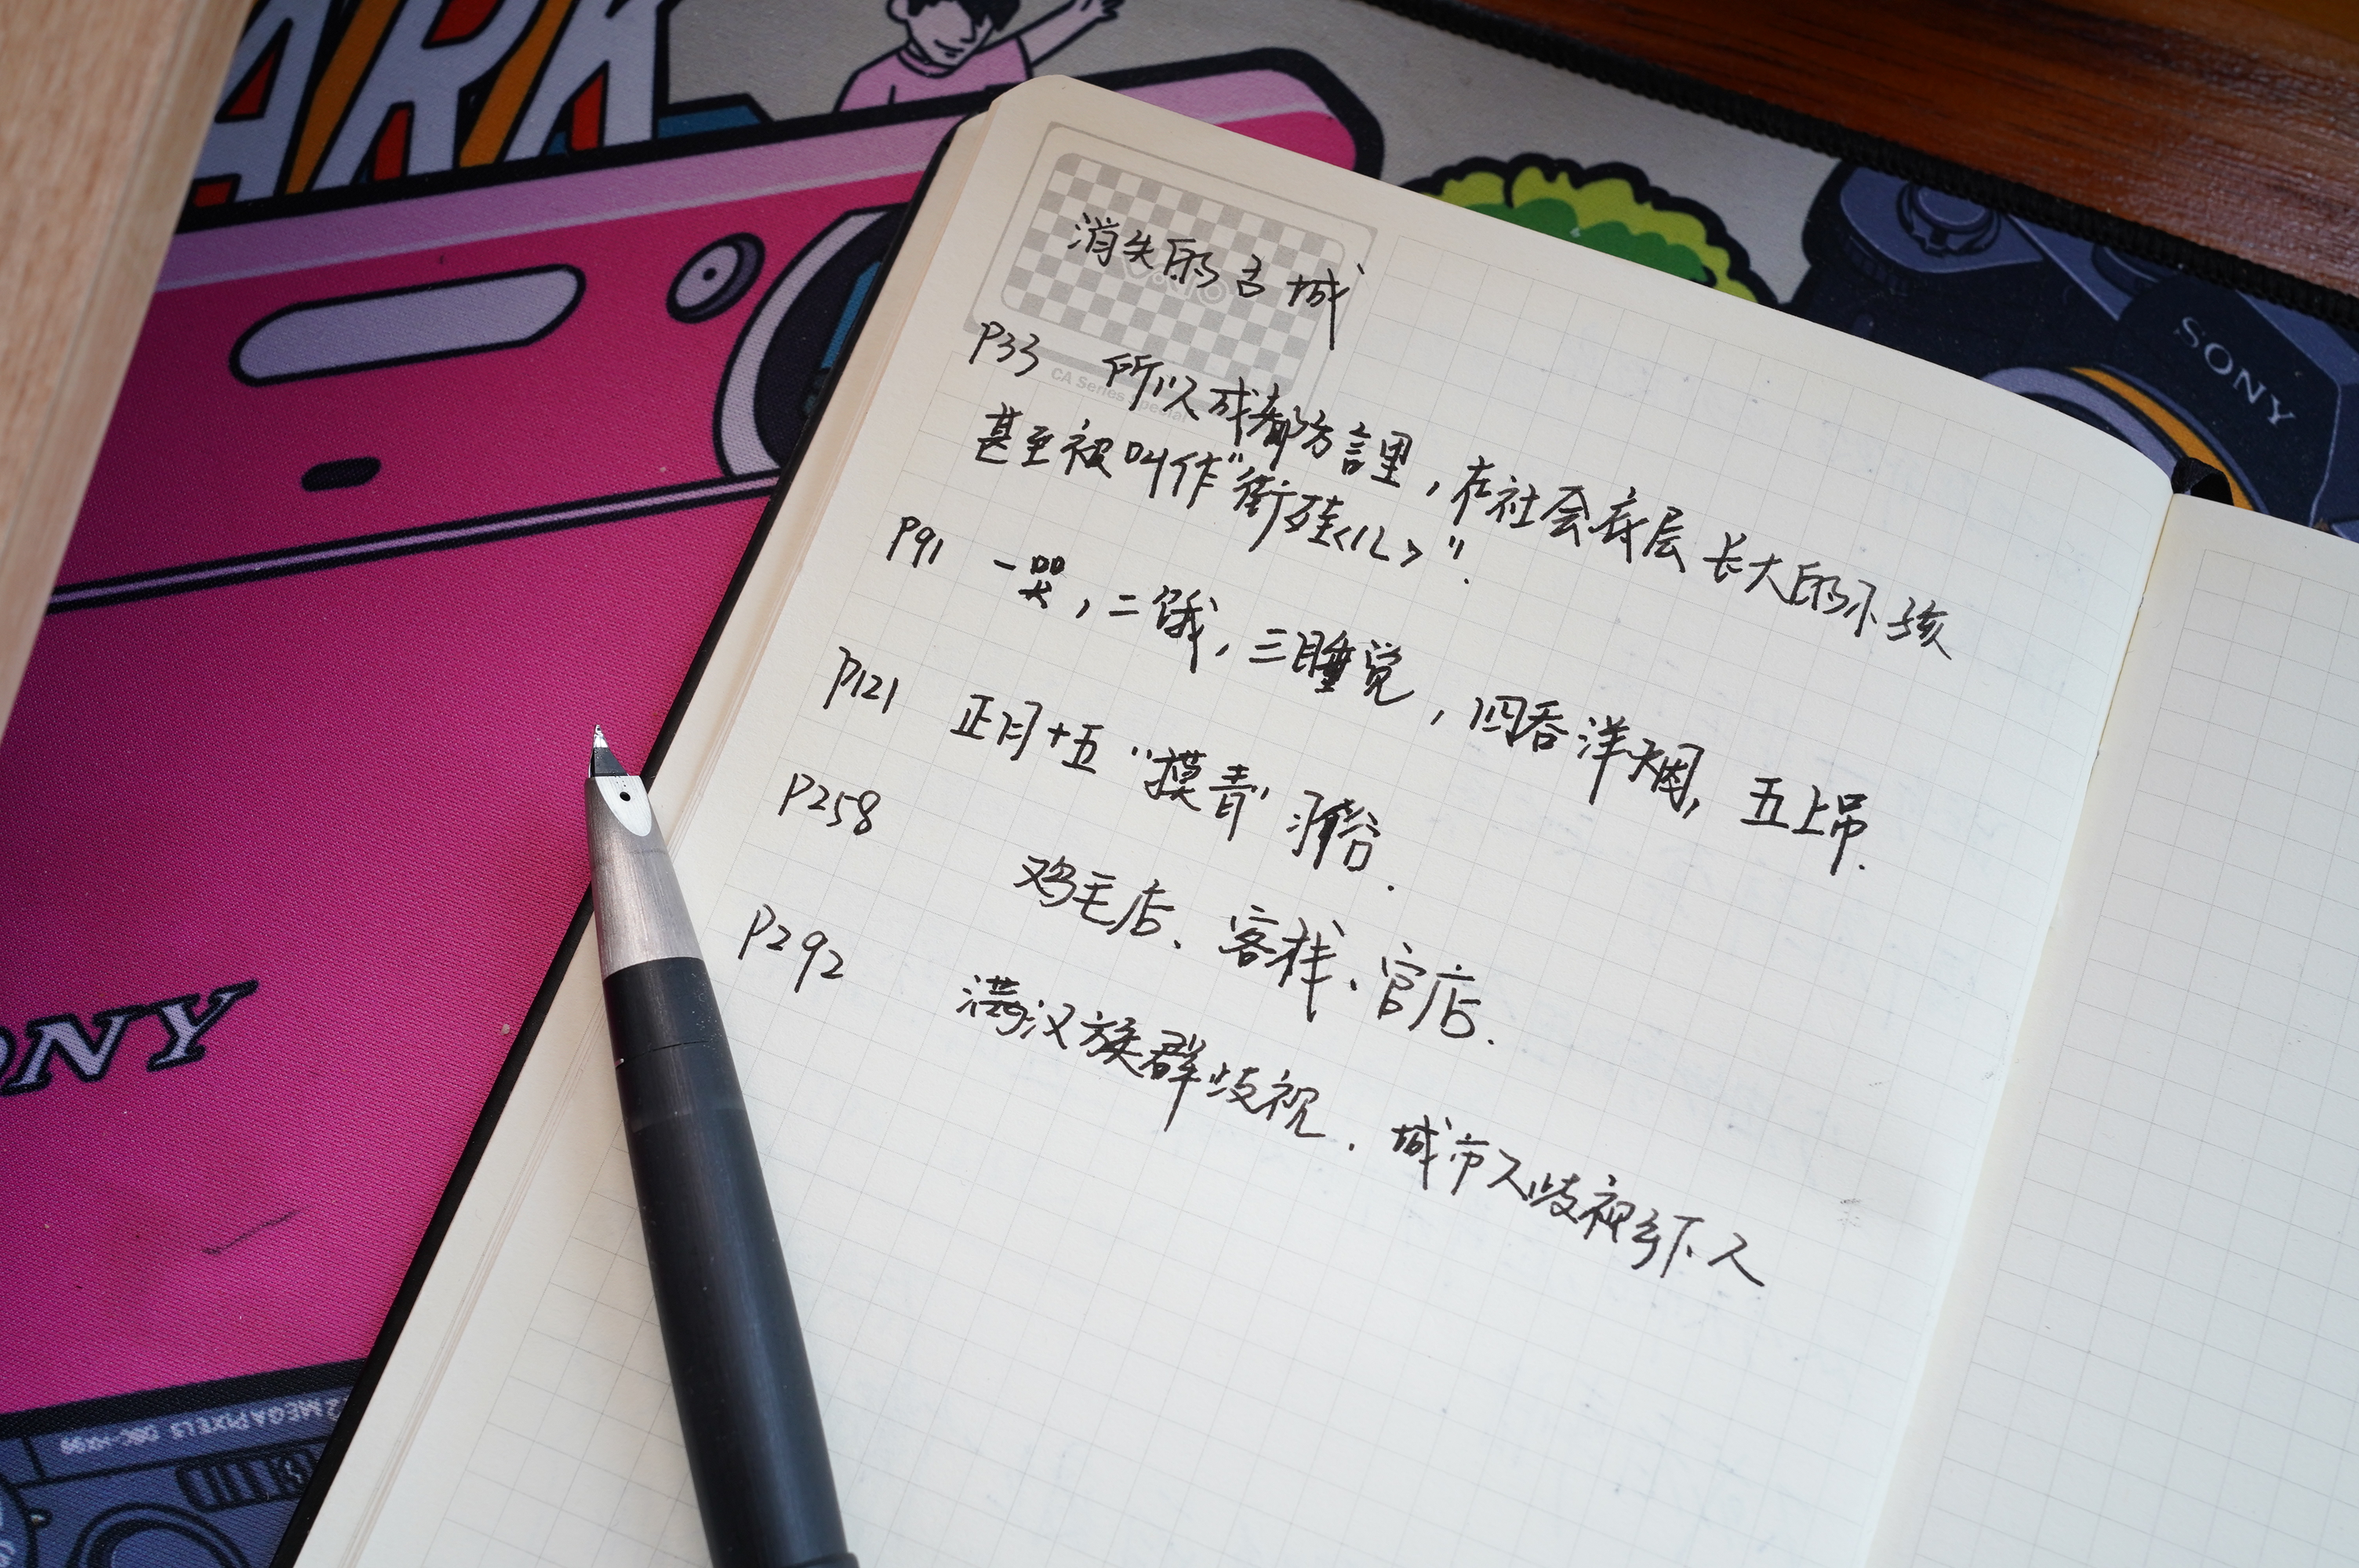 ARK
SONY
消失的古城
CA Series Special
P33 所以成都方言里,在社会底层长大的小孩
甚至被叫作“街娃<儿>”.
P91 一哭,二饿,三睡觉,四吞洋烟,五上吊.
P121 正月十五“摸青”习俗.
P258 鸡毛店、客栈、官店.
P292 满汉族群歧视.城市人歧视乡下人
ONY
2 MEGA PIXELS DSC-HX99